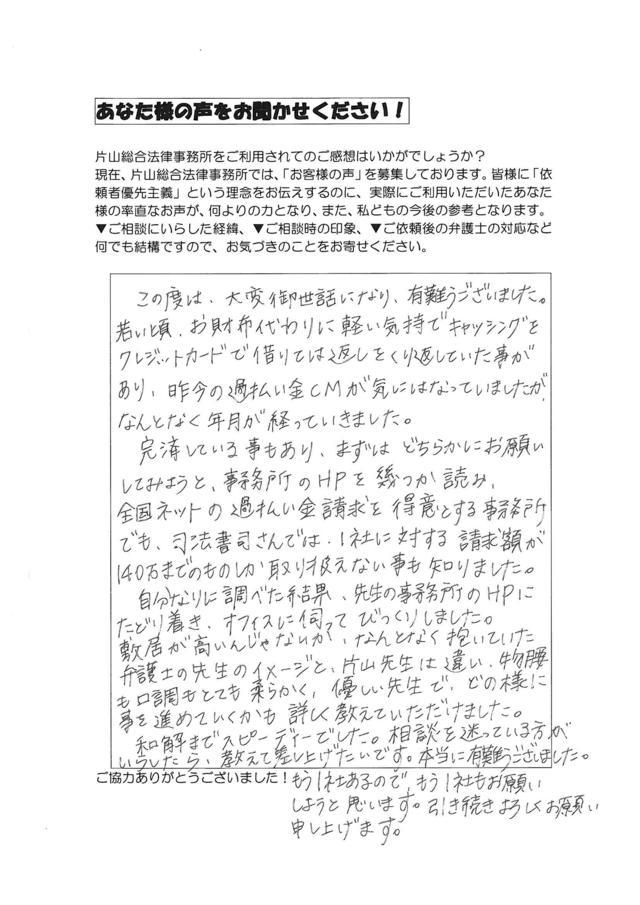 あなた様の声をお聞かせください！
片山総合法律事務所をご利用されてのご感想はいかがでしょうか？
現在、片山総合法律事務所では、「お客様の声」を募集しております。皆様に「依
頼者優先主義」という理念をお伝えするのに、実際にご利用いただいたあなた
様の率直なお声が、何よりの力となり、また、私どもの今後の参考となります。
▼ご相談にいらした経緯、▼ご相談時の印象、▼ご依頼後の弁護士の対応など
何でも結構ですので、お気づきのことをお寄せください。
この度は、大変御世話になり、有難うございました。
若い頃、お財布代わりに軽い気持でキャッシングを
クレジットカードで借りては返しをくり返していた事が
あり、昨今の過払い金CMが気にはなっていましたが、
なんとなく年月が経っていきました。
完済している事もあり、まずは どちらかにお願い
してみようと、事務所のHPを幾つか読み、
全国ネットの過払い金請求を得意とする事務所
でも、司法書司さんでは、1社に対する請求額が
140万までのものしか取り扱えない事も知りました。
自分なりに調べた結果、先生の事務所のHPに
たどり着き、オフィスに伺って びっくりしました。
敷居が高いんじゃないか、なんとなく抱いていた
弁護士の先生のイメージと、片山先生は違い、物腰
も口調もとても柔らかく、優しい先生で、どの様に
事を進めていくかも詳しく教えていただけました。
和解までスピーディーでした。相談を迷っている方が
いらしたら、教えて差し上げたいです。本当に有難うございました。
ご協力ありがとうございました！
もう1社あるので、もう1社もお願い
しようと思います。引き続きよろしくお願い
申し上げます。